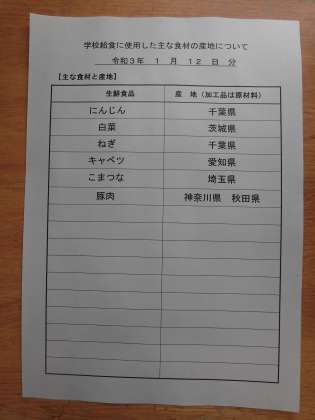 学校給食に使用した主な食材の産地について
令和3年 1 月 12 日 分
【主な食材と産地】
生鮮食品 産 地（加工品は原材料）
にんじん 千葉県
白菜 茨城県
ねぎ 千葉県
キャベツ 愛知県
こまつな 埼玉県
豚肉 神奈川県 秋田県